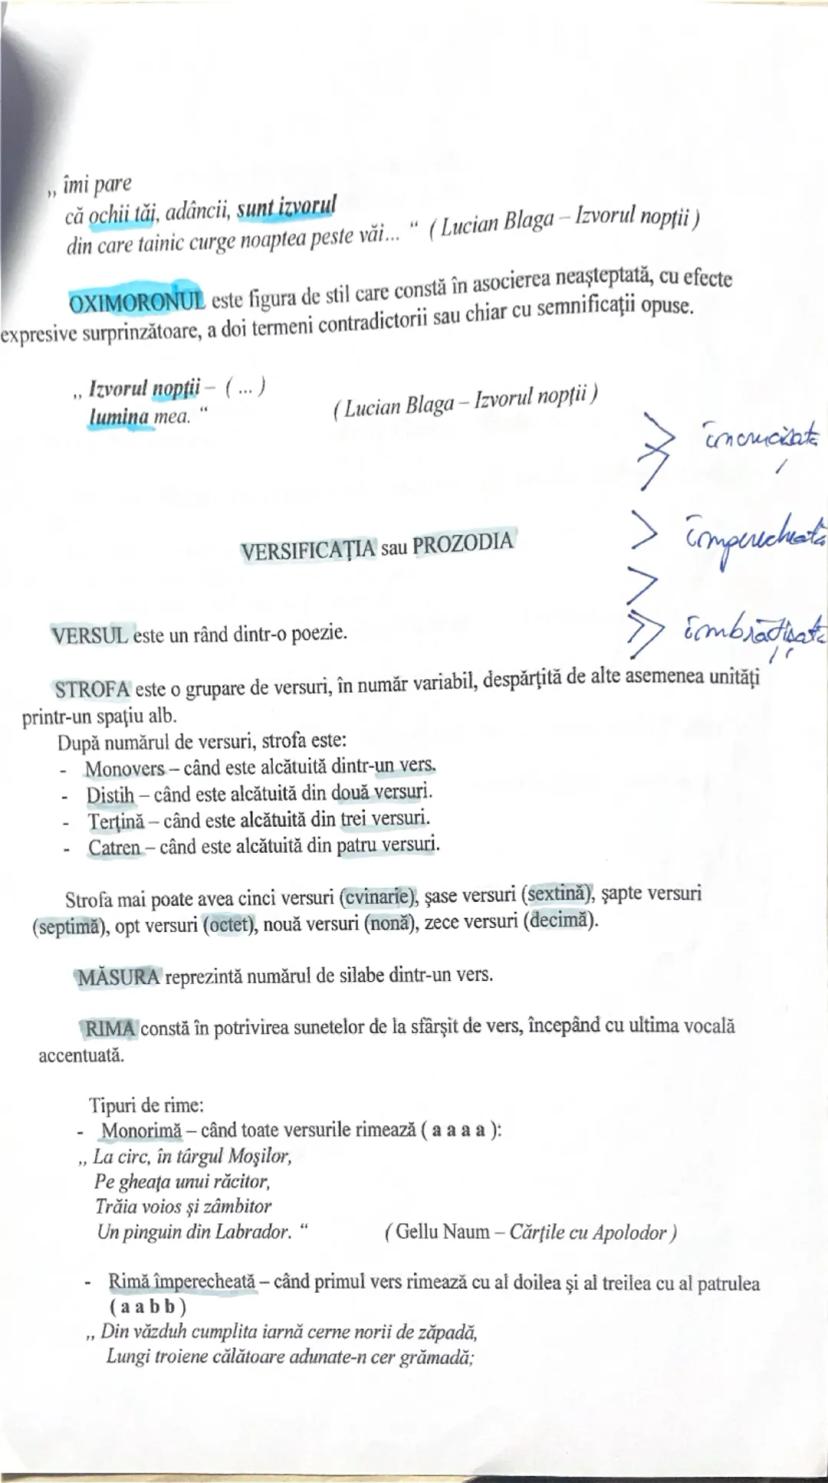 „ îmi pare
că ochii tăi, adâncii, sunt izvorul
din care tainic curge noaptea peste văi... “ ( Lucian Blaga – Izvorul nopţii )
OXIMORONUL este figura de stil care constă în asocierea neaşteptată, cu efecte
expresive surprinzătoare, a doi termeni contradictorii sau chiar cu semnificaţii opuse.
„ Izvorul nopţii – ( ... )
lumina mea. “ ( Lucian Blaga – Izvorul nopţii )
încrucișată
VERSIFICAŢIA sau PROZODIA
împerecheată
VERSUL este un rând dintr-o poezie.
îmbrățișată
STROFA este o grupare de versuri, în număr variabil, despărţită de alte asemenea unităţi
printr-un spaţiu alb.
După numărul de versuri, strofa este:
- Monovers – când este alcătuită dintr-un vers.
- Distih – când este alcătuită din două versuri.
- Terţină – când este alcătuită din trei versuri.
- Catren – când este alcătuită din patru versuri.
Strofa mai poate avea cinci versuri (cvinarie), şase versuri (sextină), şapte versuri
(septimă), opt versuri (octet), nouă versuri (nonă), zece versuri (decimă).
MĂSURA reprezintă numărul de silabe dintr-un vers.
RIMA constă în potrivirea sunetelor de la sfârşit de vers, începând cu ultima vocală
accentuată.
Tipuri de rime:
- Monorimă – când toate versurile rimează ( a a a a ):
„ La circ, în târgul Moşilor,
Pe gheaţa unui răcitor,
Trăia voios şi zâmbitor
Un pinguin din Labrador. “ ( Gellu Naum – Cărţile cu Apolodor )
- Rimă împerecheată – când primul vers rimează cu al doilea şi al treilea cu al patrulea
( a a b b )
„ Din văzduh cumplita iarnă cerne norii de zăpadă,
Lungi troiene călătoare adunate-n cer grămadă;